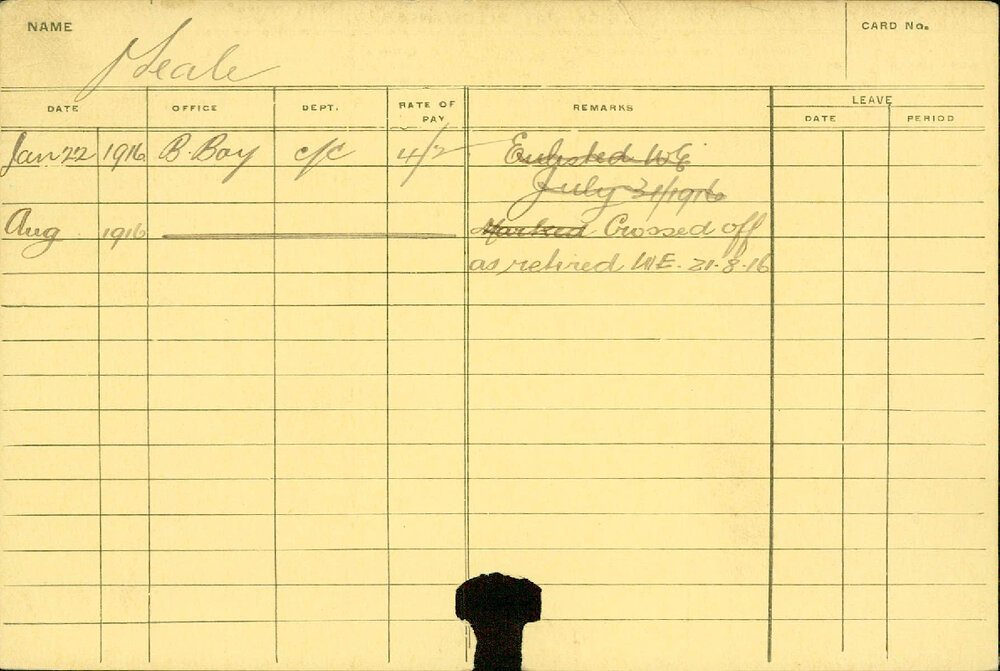 NAME
CARD No.
Neale
DATE OFFICE DEPT. RATE OF PAY REMARKS LEAVE
DATE PERIOD
Jan 22 1916 B. Boy c/c 4/2 Enlisted WE
July 31/1916
Aug 1916 Marked Crossed off
as retired WE. 21-8-16